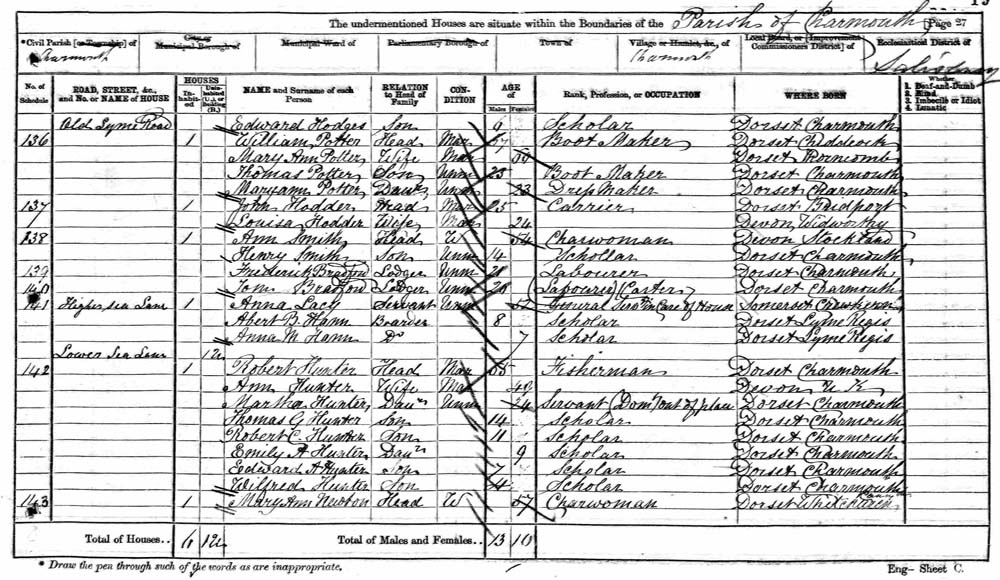 The undermentioned Houses are situate within the Boundaries of the Parish of Charmouth Page 27
*Civil Parish [or Township] of City or Municipal Borough of Municipal Ward of Parliamentary Borough of Town of Village or Hamlet, &c., of Local Board, or [Improvement Commissioners District] of Ecclesiastical District of
Charmouth Charmouth Salisbury
No. of Schedule ROAD, STREET, &c., and No. or NAME of HOUSE HOUSES Inhabited Uninhabited (U.), or Building (B.) NAME and Surname of each Person RELATION to Head of Family CONDITION AGE of Males Females Rank, Profession, or OCCUPATION WHERE BORN Whether 1. Deaf-and-Dumb 2. Blind 3. Imbecile or Idiot 4. Lunatic
Old Lyme Road Edward Hodges Son 9 Scholar Dorset Charmouth
136 1 William Potter Head Mar 57 Boot Maker Dorset Chiddeock
Mary Ann Potter Wife Mar 50 Dorset Thorncomb
Thomas Potter Son Unm 23 Boot Maker Dorset Charmouth
Maryann Potter Daur Unm 23 Drip Maker Dorset Charmouth
137 1 John Hodder Head Mar 25 Carrier Dorset Bridport
Louisa Hodder Wife Mar 24 Devon Widworthy
138 1 Ann Smith Head W 54 Charwoman Devon Stockland
Henry Smith Son Unm 14 Scholar Dorset Charmouth
139 Frederick Bradford Lodger Unm 28 Labourer Dorset Charmouth
140 Tom Bradford Lodger Unm 26 Labourer (Carter) Dorset Charmouth
141 Higher Sea Lane 1 Anna Lacy Servant Unm 52 General Servt in Care of House Somerset Crewkerne
Abert B. Hann Boarder 8 Scholar Dorset Lyme Regis
Anna M. Hann Do 7 Scholar Dorset Lyme Regis
Lower Sea Lane 1u
142 1 Robert Hunter Head Mar 55 Fisherman Dorset Charmouth
Ann Hunter Wife Mar 49 Devon N. K.
Martha Hunter Daur Unm 24 Servant (Dom) out of place Dorset Charmouth
Thomas G Hunter Son 14 Scholar Dorset Charmouth
Robert C. Hunter Son 11 Scholar Dorset Charmouth
Emily A Hunter Daur 9 Scholar Dorset Charmouth
Edward A Hunter Son 7 Scholar Dorset Charmouth
Wilfred Hunter Son 4 Scholar Dorset Charmouth
143 1 Mary Ann Newton Head W 57 Charwoman Dorset Whitchurch
Total of Houses.. 6 1u Total of Males and Females.. 13 10
* Draw the pen through such of the words as are inappropriate. Eng– Sheet C.